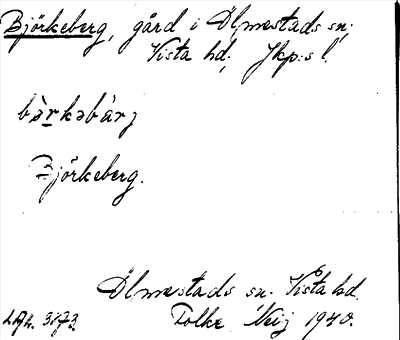 Björkeberg, gård i Ölmestads sn;
Vista hd; Jkp:s l.
bə̀rkəbàrj
Björkeberg.
Ölmestads sn. Vista hd.
LAn. 3173. Folke Neij 1940.